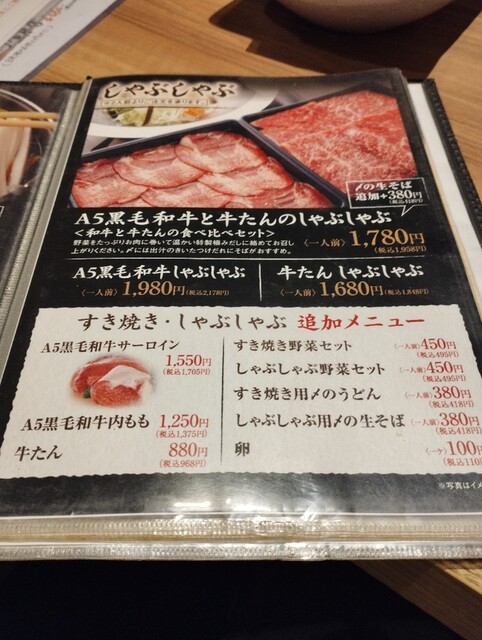 しゃぶしゃぶ
※2人前よりご注文を承ります。
〆の生そば
追加+380円
(税込418円)
A5黒毛和牛と牛たんのしゃぶしゃぶ
<和牛と牛たんの食べ比べセット>
野菜をたっぷりお肉に巻いて温かい特製極みだしに絡めてお召し
上がりください。〆には出汁のきいたつけだれにそばがおすすめ。
〈一人前〉1,780円
(税込1,958円)
A5黒毛和牛しゃぶしゃぶ
〈一人前〉1,980円(税込2,178円)
牛たん しゃぶしゃぶ
〈一人前〉1,680円(税込1,848円)
すき焼き・しゃぶしゃぶ 追加メニュー
A5黒毛和牛サーロイン
1,550円
(税込1,705円)
A5黒毛和牛内もも 1,250円
(税込1,375円)
牛たん 880円
(税込968円)
すき焼き野菜セット 〈一人前〉450円
(税込495円)
しゃぶしゃぶ野菜セット 〈一人前〉450円
(税込495円)
すき焼き用〆のうどん 〈一人前〉380円
(税込418円)
しゃぶしゃぶ用〆の生そば 〈一人前〉380円
(税込418円)
卵 〈一ケ〉100円
(税込110
※写真はイメ